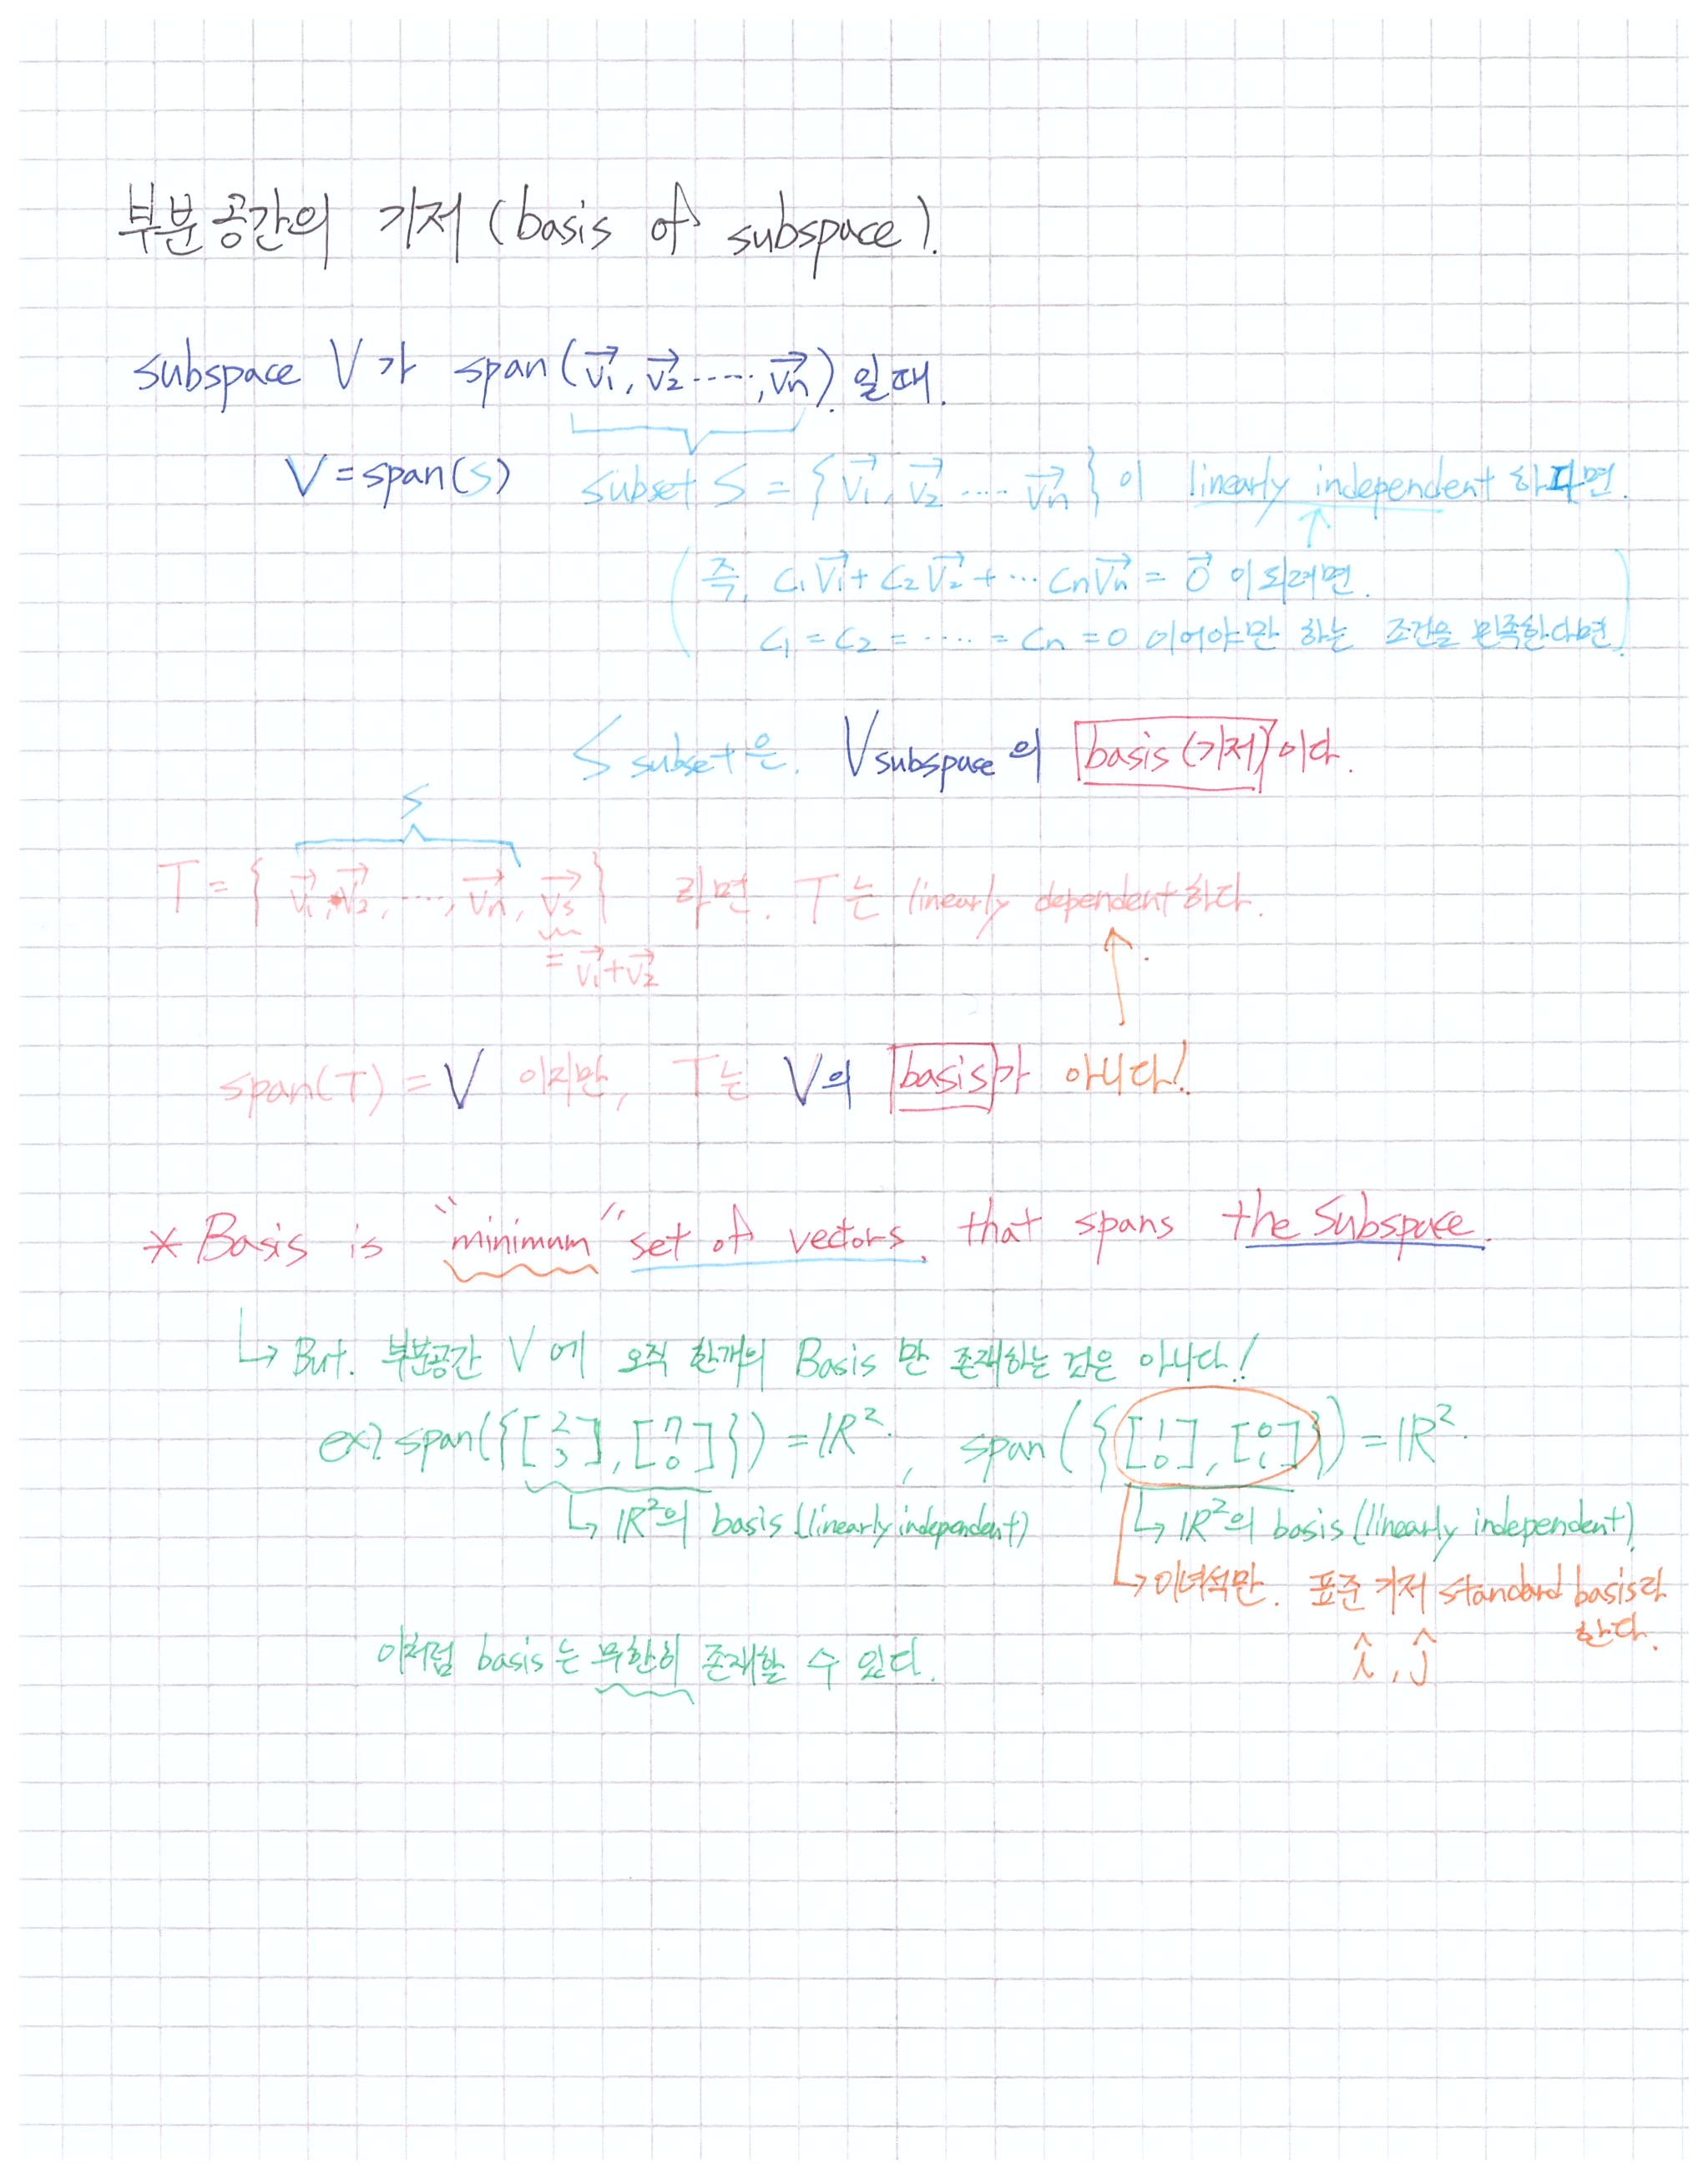 부분공간의 기저 (basis of subspace).
subspace V가 span(v₁⃗, v₂⃗ ·····, vₙ⃗) 일때.
V = span(S) subset S = { v₁⃗, v₂⃗ ···· vₙ⃗ } 이 linearly independent 하다면.
(즉, c₁v₁⃗ + c₂v₂⃗ + ··· cₙvₙ⃗ = 0⃗ 이 되려면.
c₁ = c₂ = ····· = cₙ = 0 이어야만 하는 조건을 만족한다면.)
S subset은. V subspace의 basis (기저)이다.
S
T = { v₁⃗, v₂⃗, ····, vₙ⃗, vₛ⃗ } 라면. T는 linearly dependent하다.
= v₁⃗ + v₂⃗
span(T) = V 이지만, T는 V의 basis가 아니다!
* Basis is "minimum" set of vectors, that spans the Subspace.
↳ But. 부분공간 V에 오직 한개의 Basis 만 존재하는 것은 아니다!
ex) span({[2 3], [7 0]}) = ℝ². , span({[1 0], [0 1]}) = ℝ².
↳ ℝ²의 basis (linearly independent) ↳ ℝ²의 basis (linearly independent)
↳ 이녀석만. 표준 기저 standard basis라
한다.
이처럼 basis는 무한히 존재할 수 있다. î, ĵ